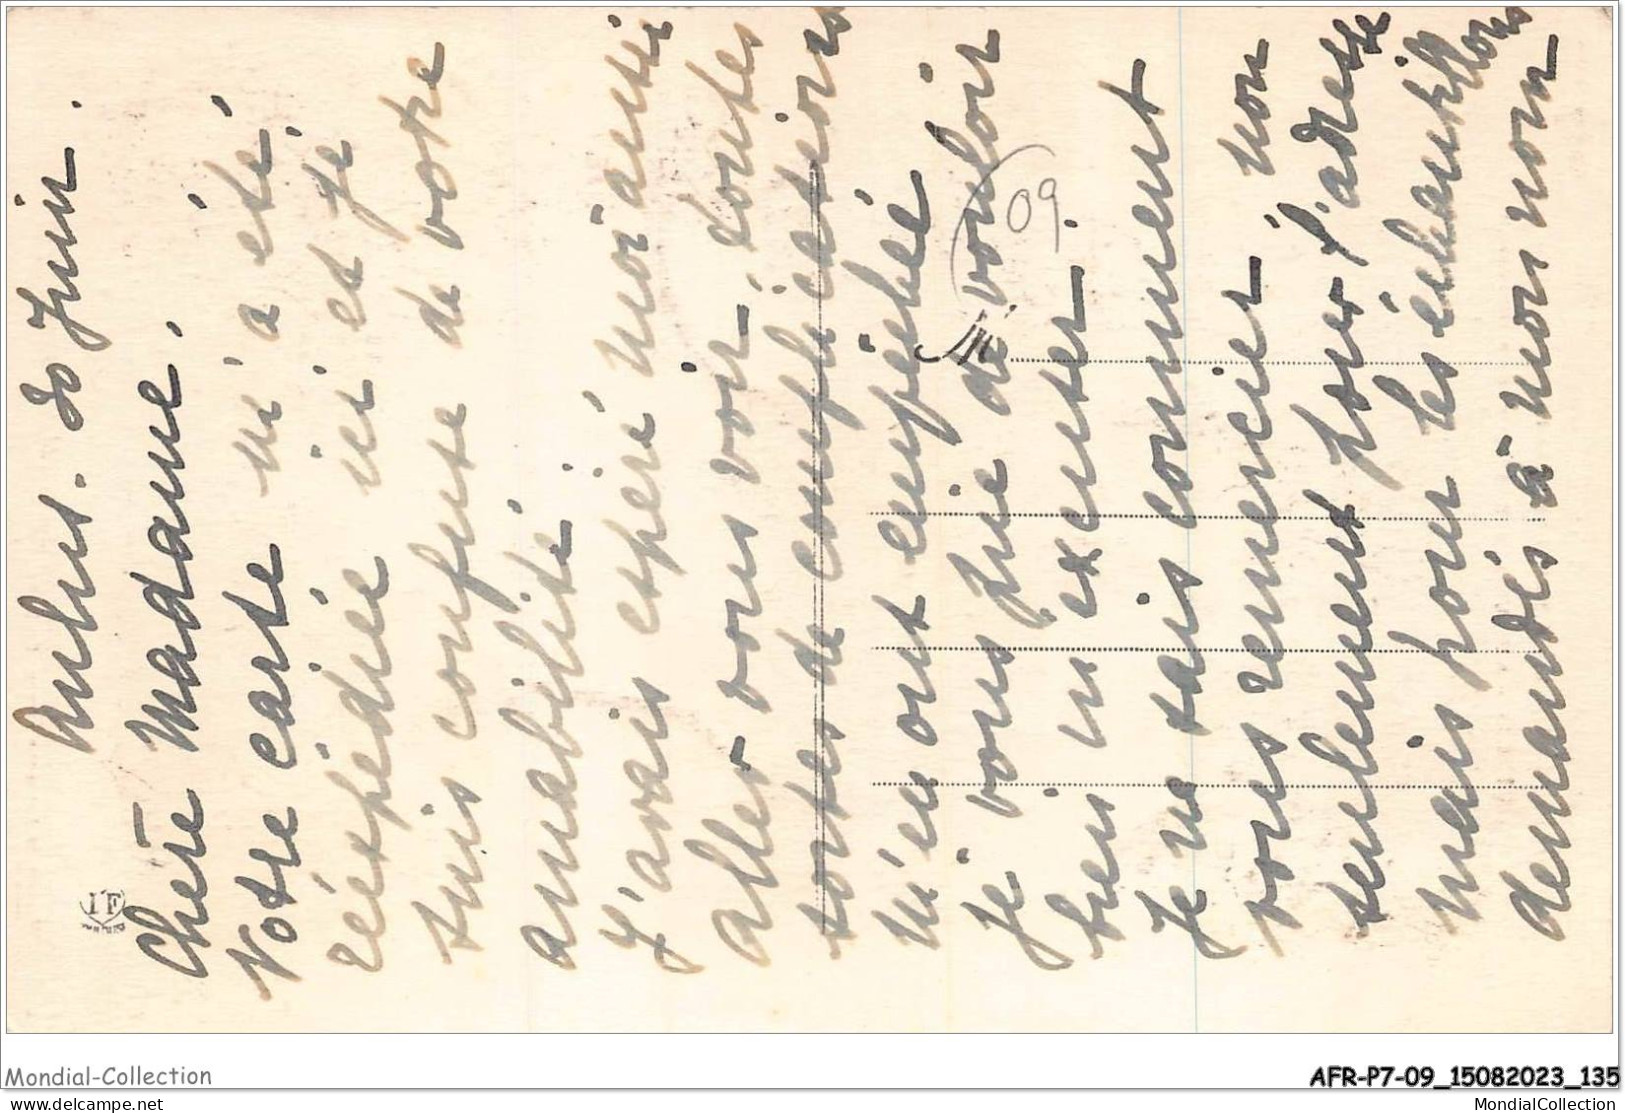 Aulus. 30 Juin.
Chère Madame,
Votre carte m'a été
réexpédiée ici et je
suis confuse de votre
amabilité.
J'avais espéré moi aussi
aller vous voir, toutes
sortes de complications
m'en ont empêché
Je vous prie de vouloir
bien m'excuser.
Je ne sais comment
vous remercier, non
seulement pour l'adresse
mais pour les échantillons
demandés à mon nom
09
IF
Mondial-Collection
AFR-P7-09_15082023_135
delcampe.net
MondialCollection